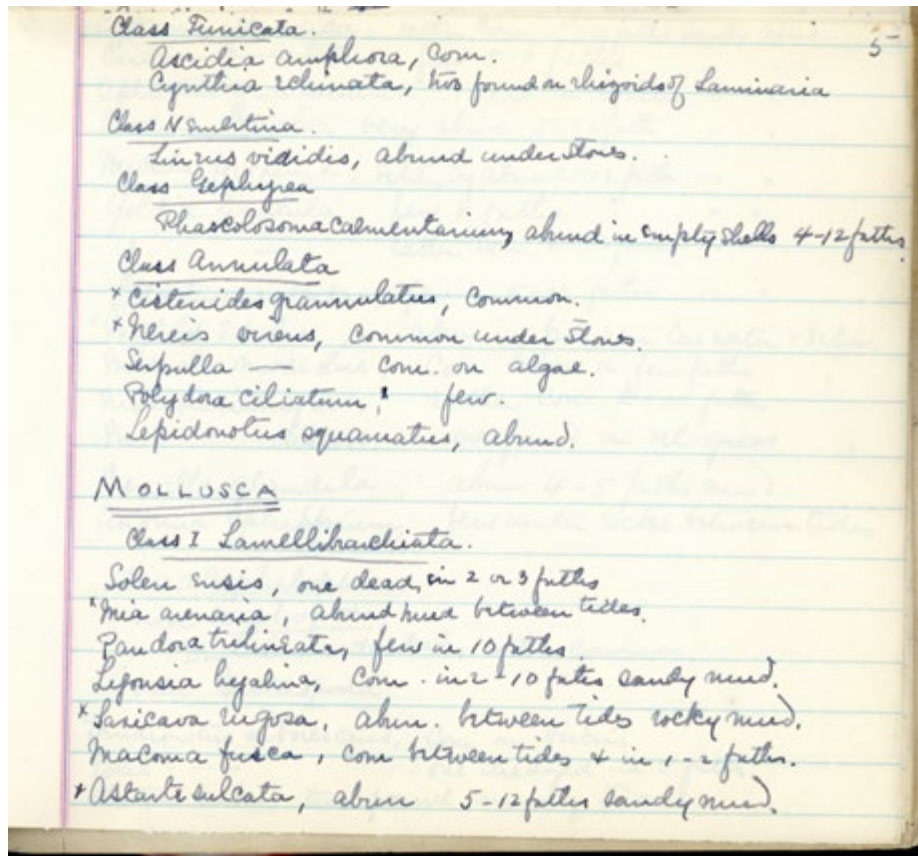 5
Class Tunicata.
Ascidia amphora, com.
Cynthia echinata, two found on rhizoids of Laminaria
Class Nemertina.
Lineus vididis, abund under stones.
Class Gephyrea
Phascolosoma calmentarium, abund in empty shells 4-12 faths
Class Annulata
x Cistenides grannulatus, common.
x Nereis virens, common under stones.
Serpulla — com. on algae.
Polydora ciliatum, few.
Lepidonotus squamatus, abund.
MOLLUSCA
Class I Lamellibranchiata.
Solen ensis, one dead, in 2 or 3 faths
x Mia arenaria, abund mud between tides.
Pandora trilineata, few in 10 faths.
Lyonsia hyalina, com. in 2-10 faths sandy mud.
x Saxicava rugosa, abun. between tides rocky mud.
Macoma fusca, com between tides & in 1-2 faths.
x Astarte sulcata, abun 5-12 faths sandy mud.